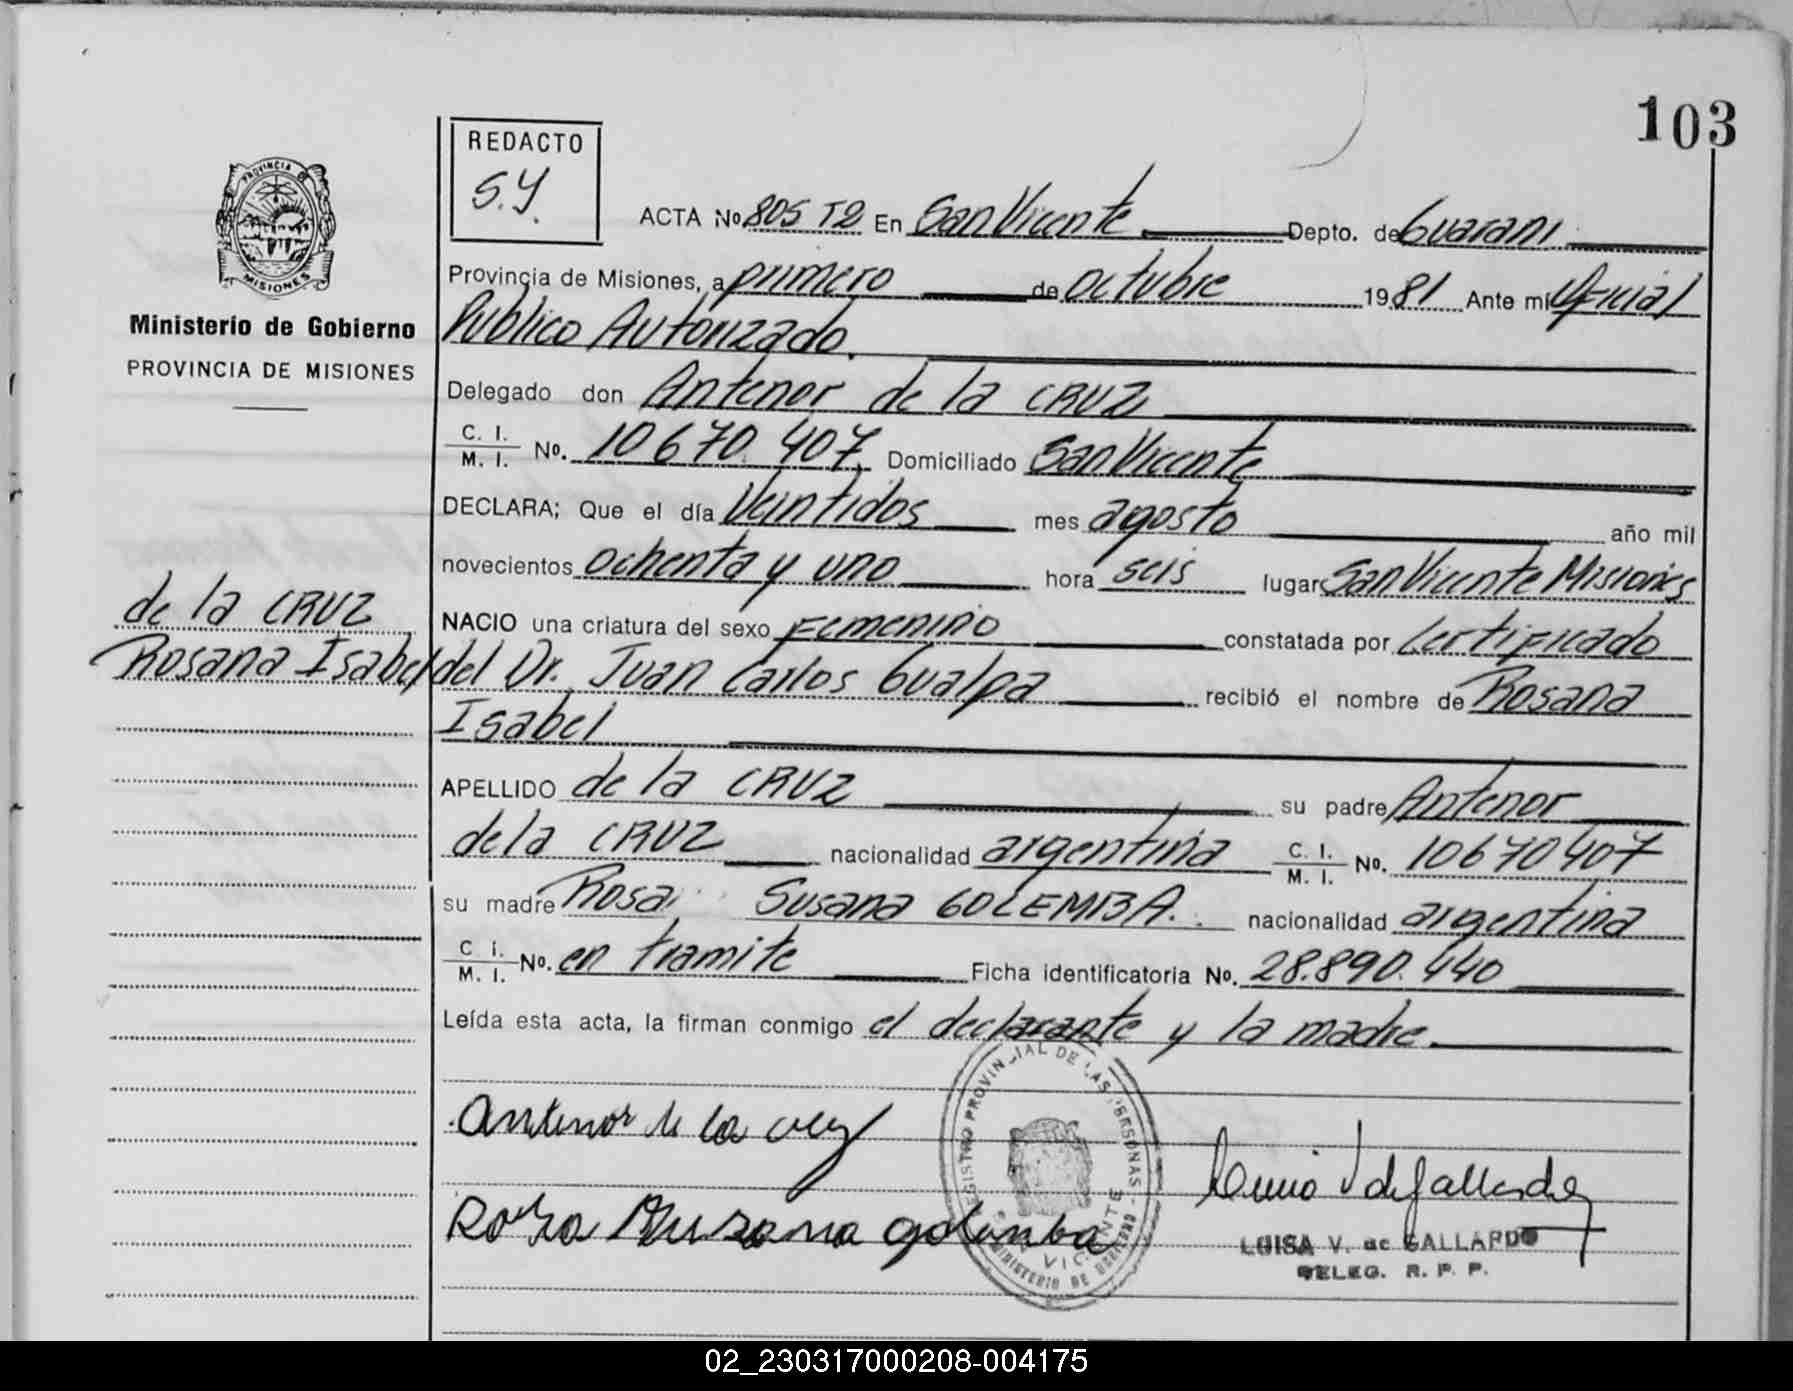 103
REDACTO
S.Y.
PROVINCIA DE
MISIONES
Ministerio de Gobierno
PROVINCIA DE MISIONES
ACTA No. 805 T2 En San Vicente Depto. de Guarani
Provincia de Misiones, a primero de octubre 1981 Ante mi Oficial
Publico Autorizado.
Delegado don Antenor de la CRUZ
C. I. / M. I. No. 10670.407. Domiciliado San Vicente
DECLARA; Que el día Veintidos mes agosto año mil
novecientos ochenta y uno hora seis lugar San Vicente Misiones
NACIO una criatura del sexo Femenino constatada por Certificado
de la CRUZ
Rosana Isabel
del Dr. Juan Carlos Gualpa recibió el nombre de Rosana
Isabel
APELLIDO de la CRUZ su padre Antenor
de la CRUZ nacionalidad argentina C. I. / M. I. No. 10670407
su madre Rosa Susana GOLEMBA. nacionalidad argentina
C. I. / M. I. No. en tramite Ficha identificatoria No. 28.890.440
Leída esta acta, la firman conmigo el declarante y la madre.
Antenor de la Cruz
Rosa Susana golemba
REGISTRO PROVINCIAL DE LAS PERSONAS
SAN VICENTE
MINISTERIO DE GOBIERNO
LUISA V. de GALLARDO
DELEG. R. P. P.
02_230317000208-004175